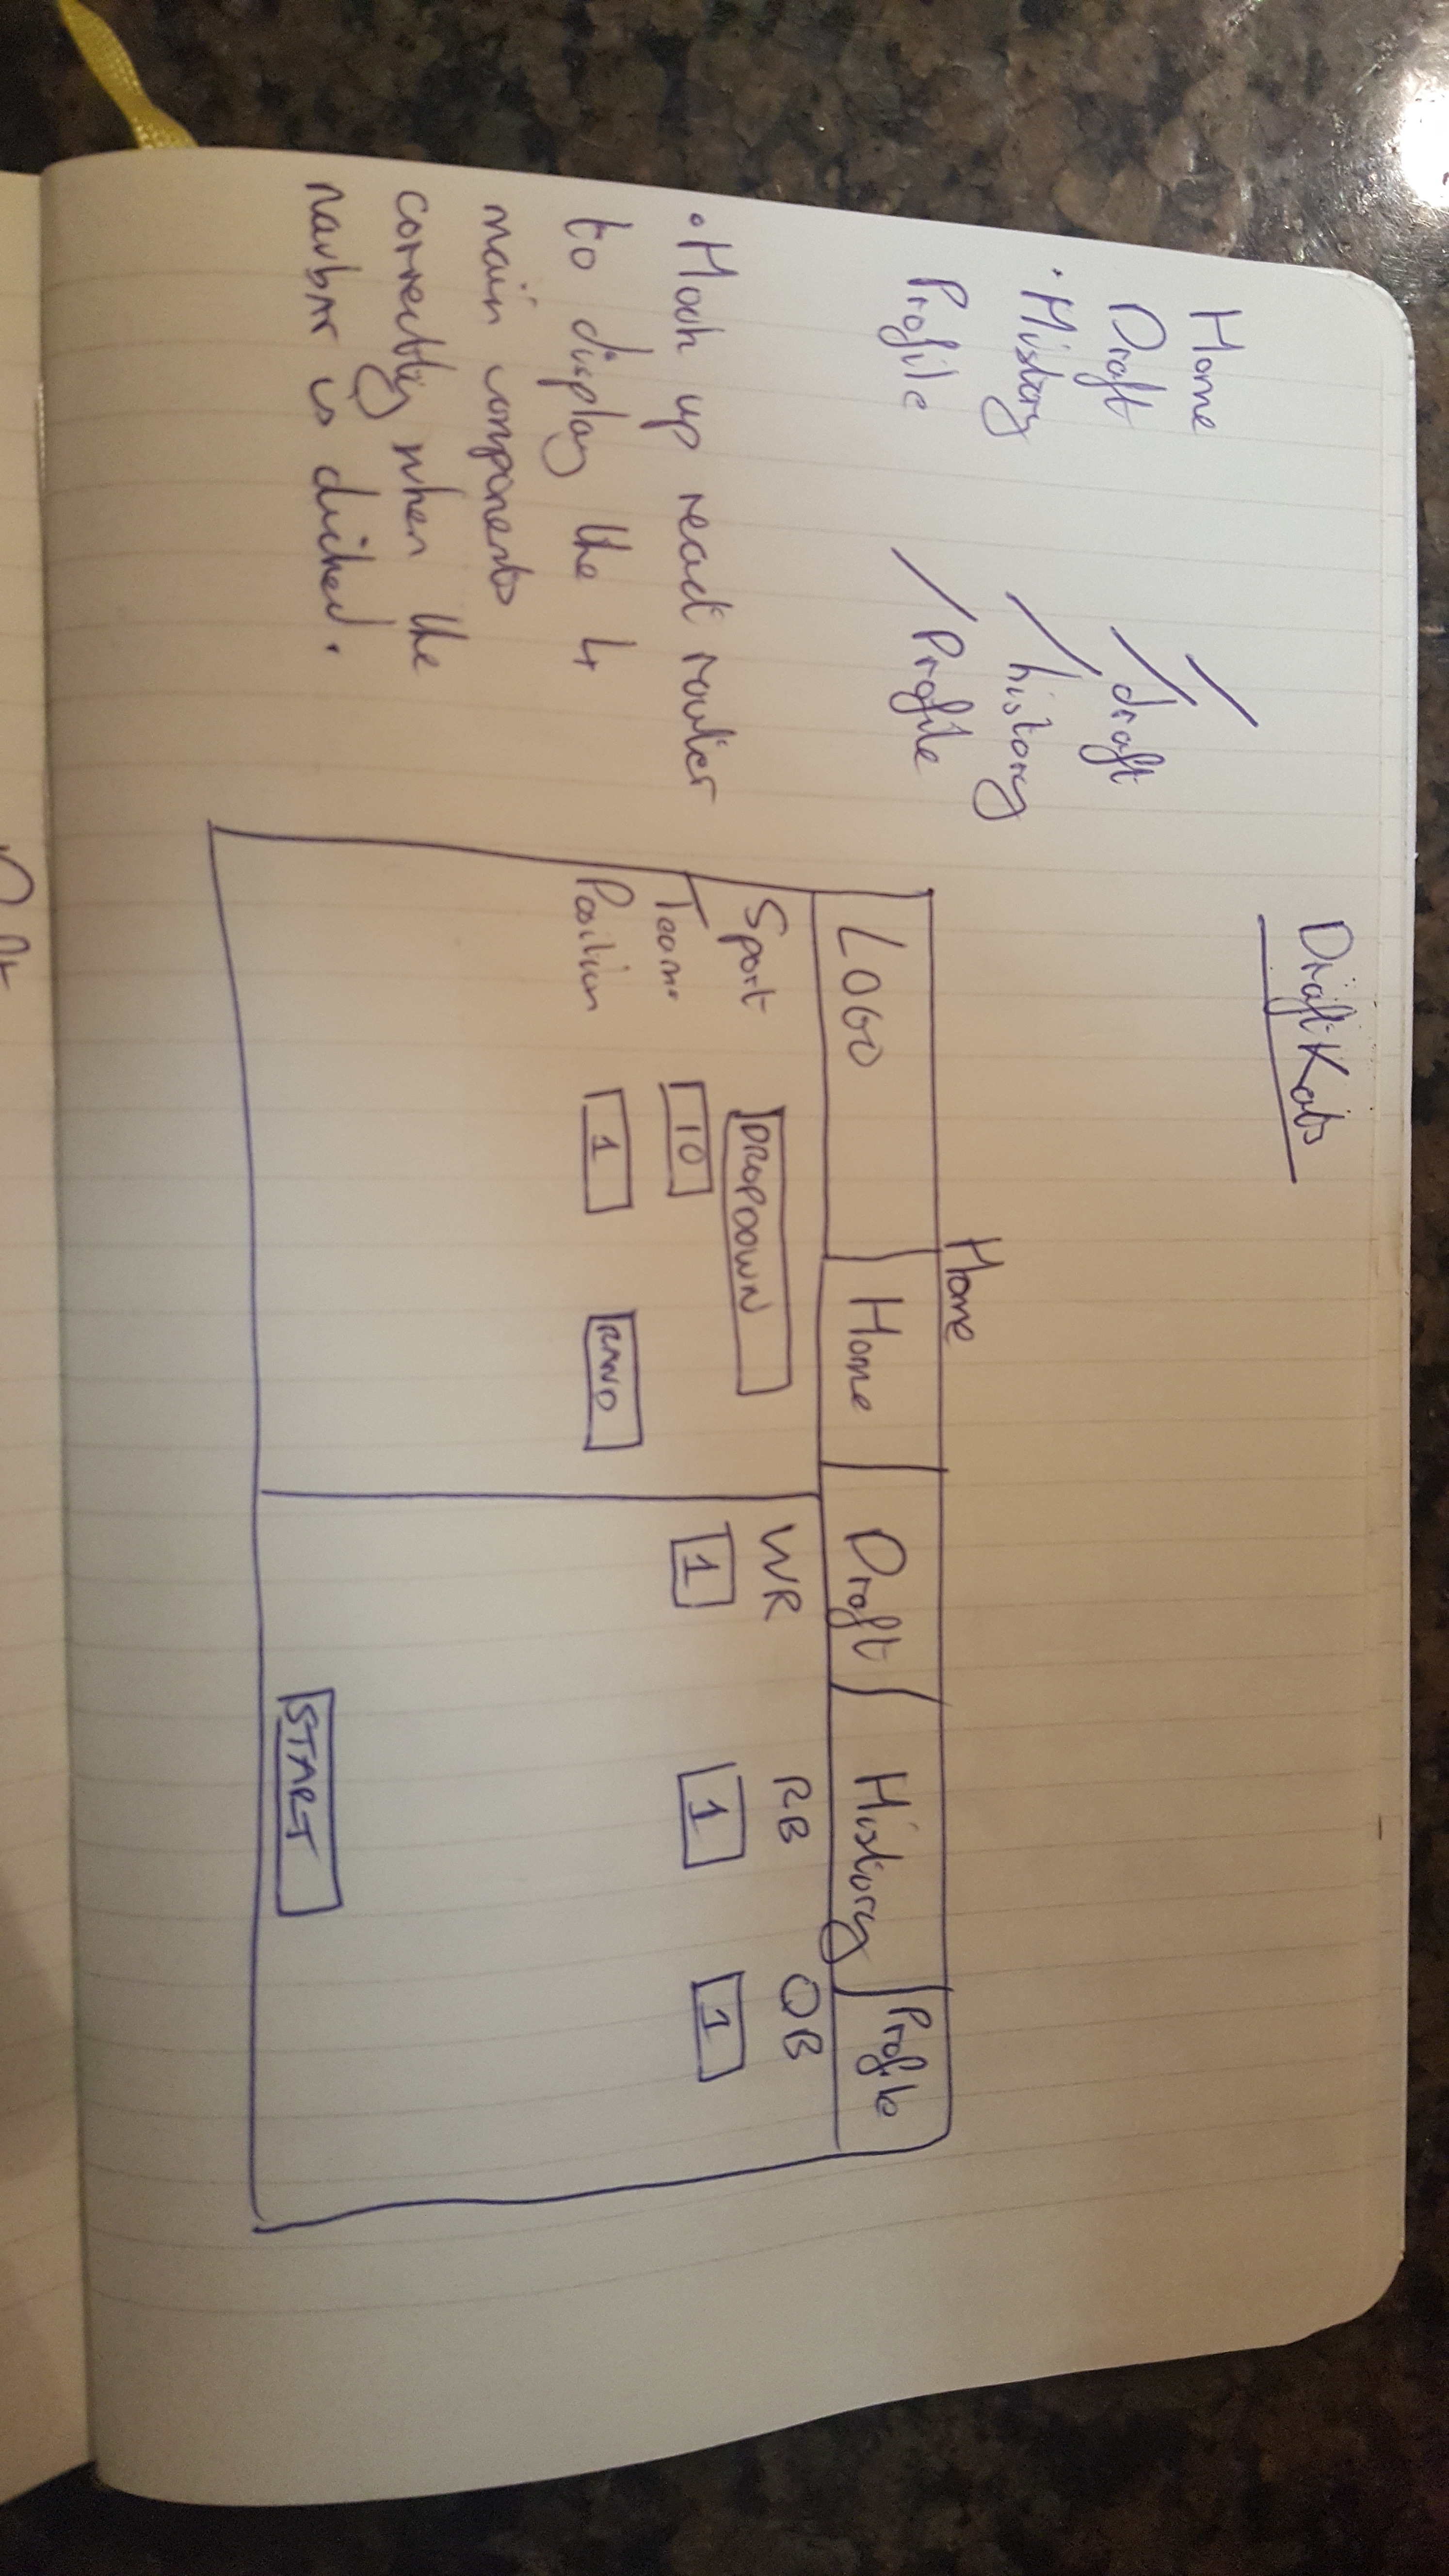 DraftKabs
Home /
Draft /draft
• History /history
Profile /Profile
• Hook up react router
to display the 4
main components
correctly when the
navbar is clicked.
Home
LOGO Home Draft History Profile
Sport DROPDOWN
Team. 10
Position 1 RAND
WR RB QB
1 1 1
START